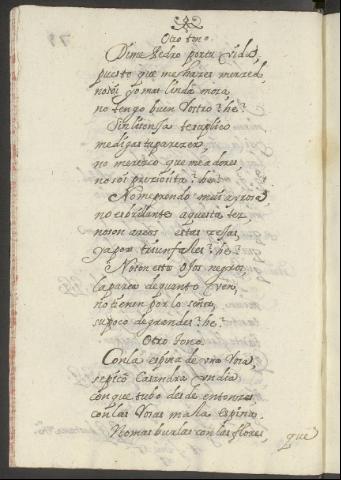 Otro tono
Dime Pedro por tu vida,
puesto que me hazes merzed,
no soi yo mas linda moza,
no tengo buen Rostro? he?
Sin lisonja te suplico
me digas tu parezer,
no merezco que me adores
no soi preziosita? he?
No me prendo mui ayrosa,
no es brillante aquesta tez
no son arcos estas zejas,
ya por triunfales? he?
No son estos Ojos negros
la parca de quantos ven,
no tienen por lo señor,
su poco de grandes? he?
Otro tono
Con la espina de una Rosa,
se picó Casandra un dia
con que tubo desde entonzes,
con las Rosas mala espina.
No mas burlas con las flores,
que